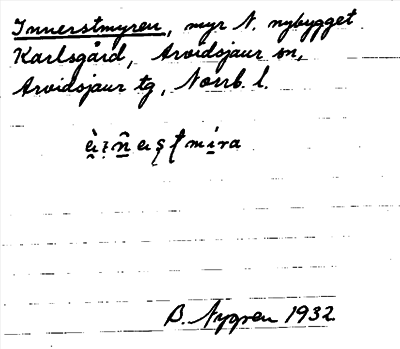 Innerstmyren, myr N. nybygget
Karlsgård, Arvidsjaur sn,
Arvidsjaur tg, Norrb. l.
B. Nygren 1932